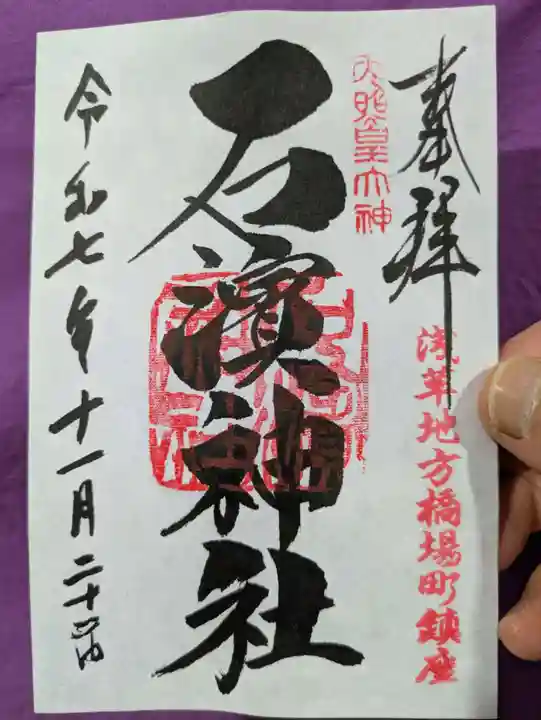 奉拝
天照皇大神
浅草地方橋場町鎮座
石濱神社
令和七年十一月二十四日